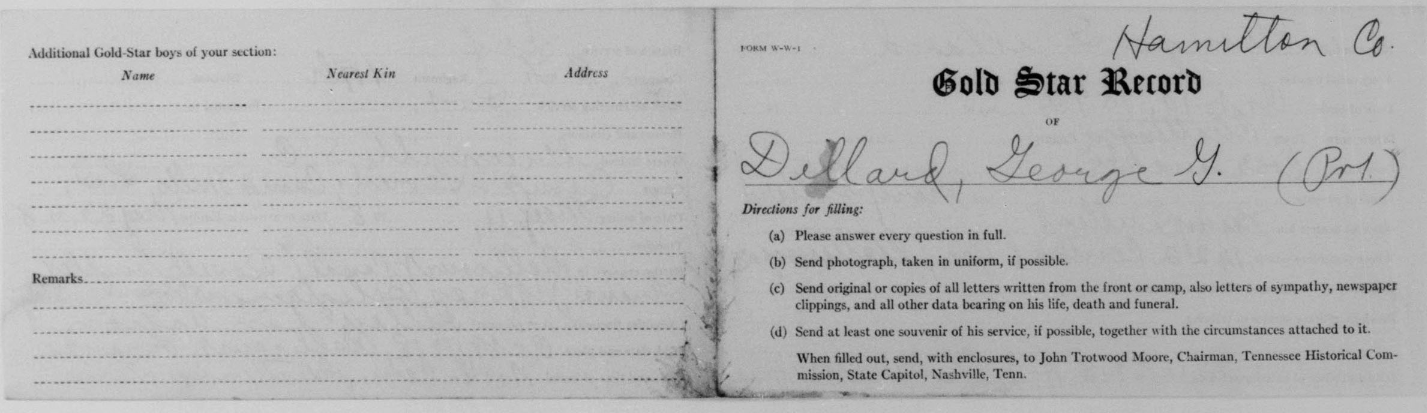 Additional Gold-Star boys of your section:
Name Nearest Kin Address
Remarks
Hamilton Co.
FORM W-W-1
Gold Star Record
OF
Dillard, George G. (Pvt.)
Directions for filling:
(a) Please answer every question in full.
(b) Send photograph, taken in uniform, if possible.
(c) Send original or copies of all letters written from the front or camp, also letters of sympathy, newspaper
clippings, and all other data bearing on his life, death and funeral.
(d) Send at least one souvenir of his service, if possible, together with the circumstances attached to it.
When filled out, send, with enclosures, to John Trotwood Moore, Chairman, Tennessee Historical Com-
mission, State Capitol, Nashville, Tenn.